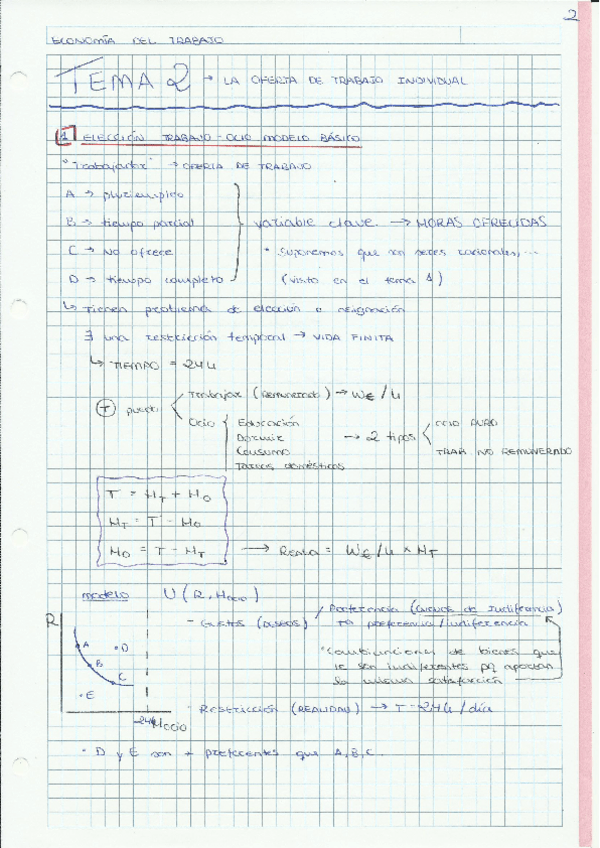 2
ECONOMÍA DEL TRABAJO
TEMA 2 → LA OFERTA DE TRABAJO INDIVIDUAL
1 ELECCIÓN TRABAJO-OCIO MODELO BÁSICO
"Trabajador" → OFERTA DE TRABAJO
A → pluriempleo
B → tiempo parcial
C → NO ofrece
D → tiempo completo
variable clave → HORAS OFRECIDAS
* Suponemos que son seres racionales,...
(visto en el tema 1)
↳ Tienen problema de elección o asignación
∃ una restricción temporal → VIDA FINITA
↳ TIEMPO = 24h
T puedo
Trabajar (Remunerado) → W€/h
Ocio
Educación
Dormir
Consumo
Tareas domésticas
→ 2 tipos
OCIO PURO
TRAB. NO REMUNERADO
T = HT + HO
HT = T - HO
HO = T - HT → Renta = W€/h × HT
modelo U(R, Hocio)
- Gustos (Deseos)
Preferencia (Curvas de Indiferencia)
preferencia/indiferencia
*Combinaciones de bienes que
le son indiferentes pq aportan
la misma satisfacción
R
A
B
C
D
E
24h
Hocio
- RESTRICCIÓN (REALIDAD) → T=24h/día
* D y E son + preferentes que A,B,C.